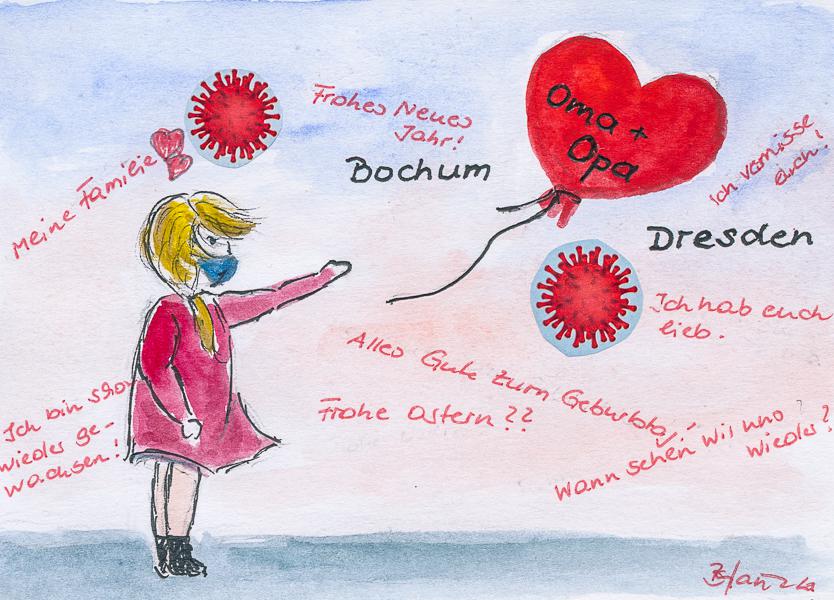 Frohes Neues
Jahr!
Oma +
Opa
Bochum
Meine Familie
Ich vermisse
euch!
Dresden
Ich hab euch
lieb.
Alles Gute zum Geburtstag!
Frohe Ostern??
Ich bin schon
wieder ge-
wachsen!
Wann sehen wir uns
wieder?